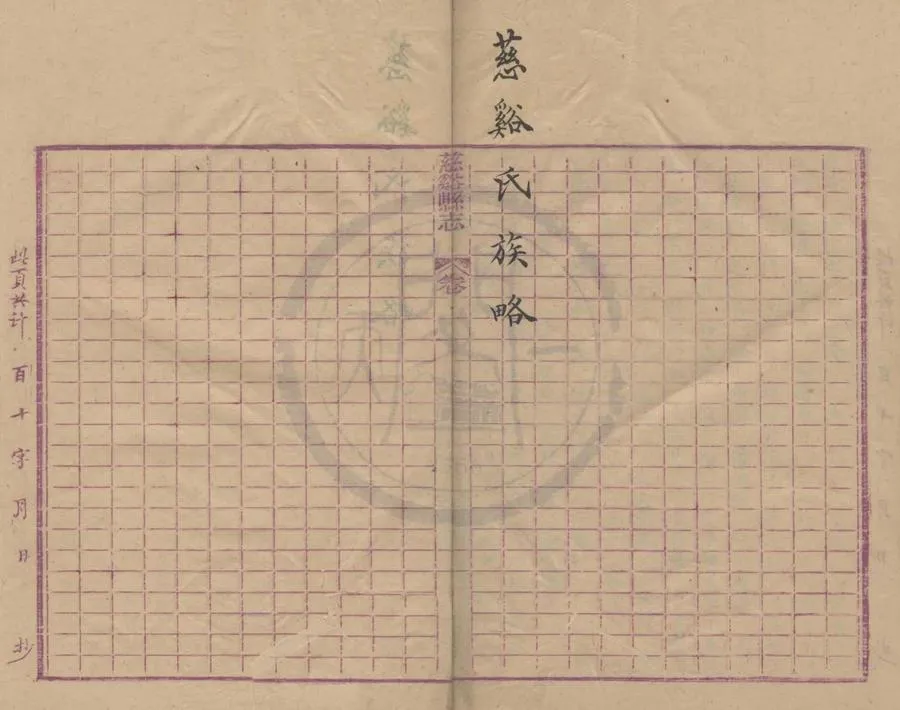 慈谿氏族略
慈谿縣志
卷
此頁共計 百 十 字 月 日 抄